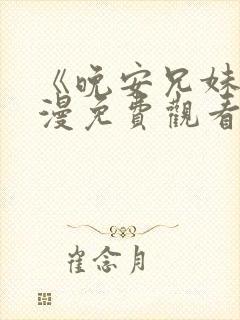 《晚安兄妹
漫免費觀看
崔念月